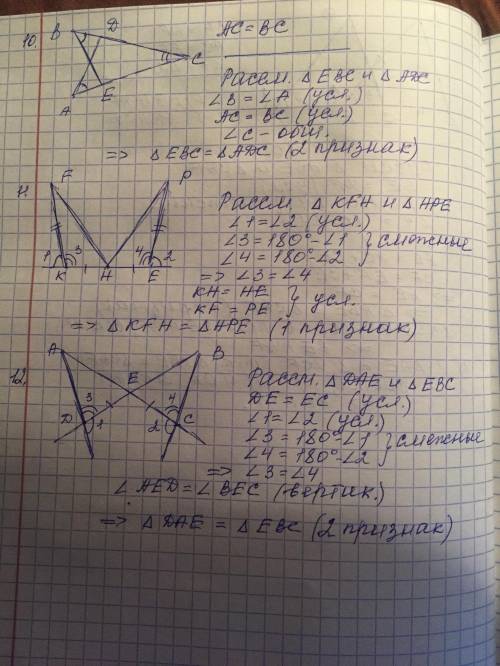 10.
B D C A E
AC = BC
Рассм. △ EBC и △ ADC
∠B = ∠A (усл.)
AC = BC (усл.)
∠C - общ.
=> △ EBC = △ ADC (2 признак)
11.
F P
1 3 4 2
K H E
Рассм. △ KFH и △ HPE
∠1 = ∠2 (усл.)
∠3 = 180° - ∠1 } смежные
∠4 = 180° - ∠2
=> ∠3 = ∠4
KH = HE } усл.
KF = PE
=> △ KFH = △ HPE (1 признак)
12.
A B
E
3 4
D 1 2 C
Рассм. △ DAE и △ EBC
DE = EC (усл.)
∠1 = ∠2 (усл.)
∠3 = 180° ∠1 } смежные
∠4 = 180° - ∠2
=> ∠3 = ∠4
∠ AED = ∠ BEC (вертик.)
=> △ DAE = △ EBC (2 признак)